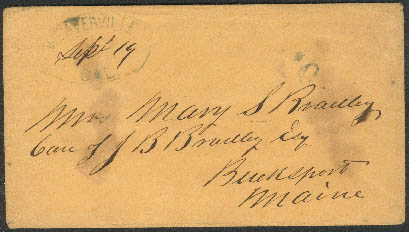 WEAVERVILLE
Sept 19
CAL.
Mrs Mary S Bradley
Care of J B Bradley Esq
Bucksport
Maine